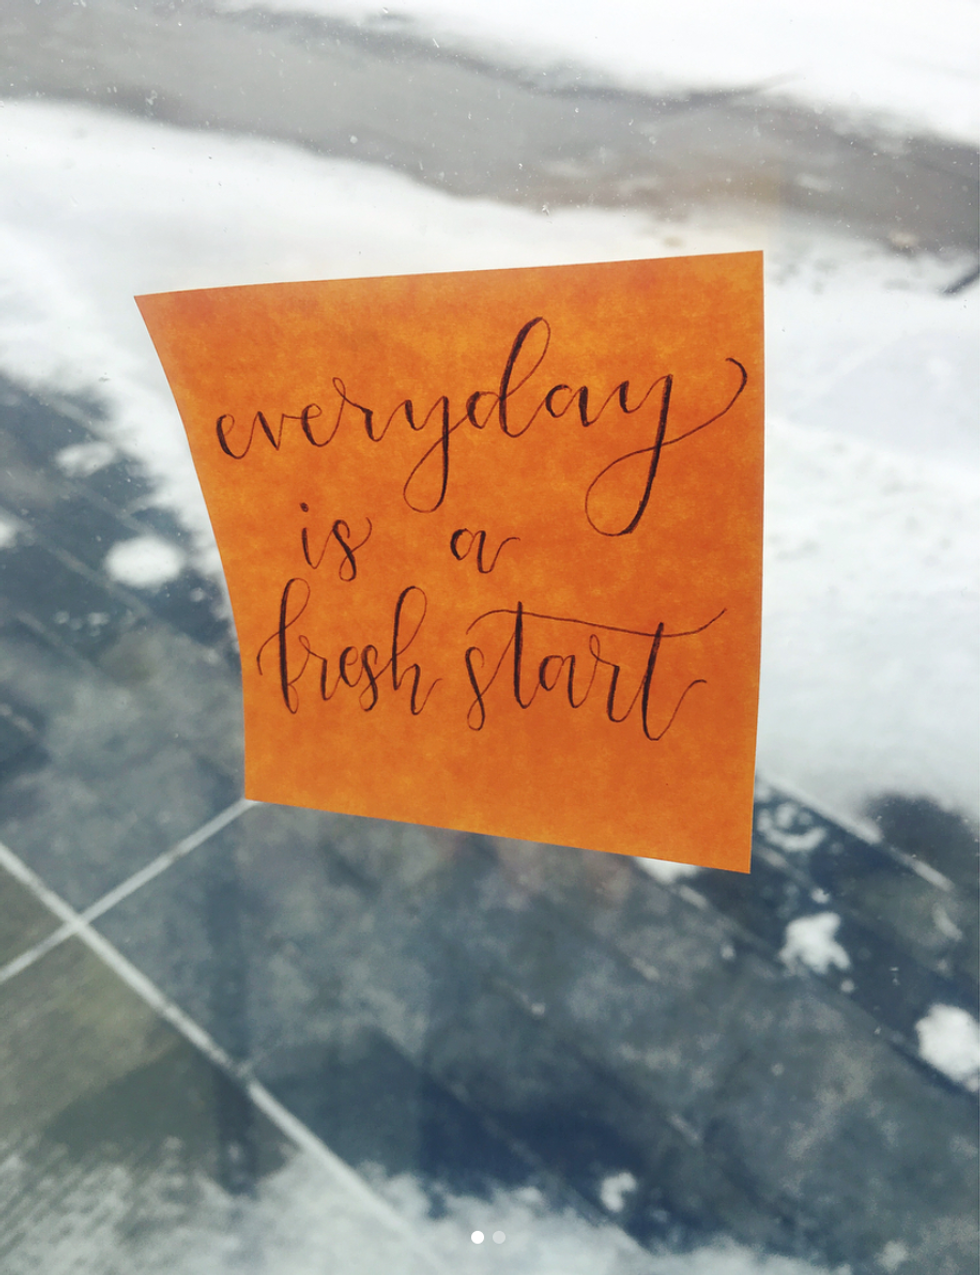 everyday
is a
fresh start